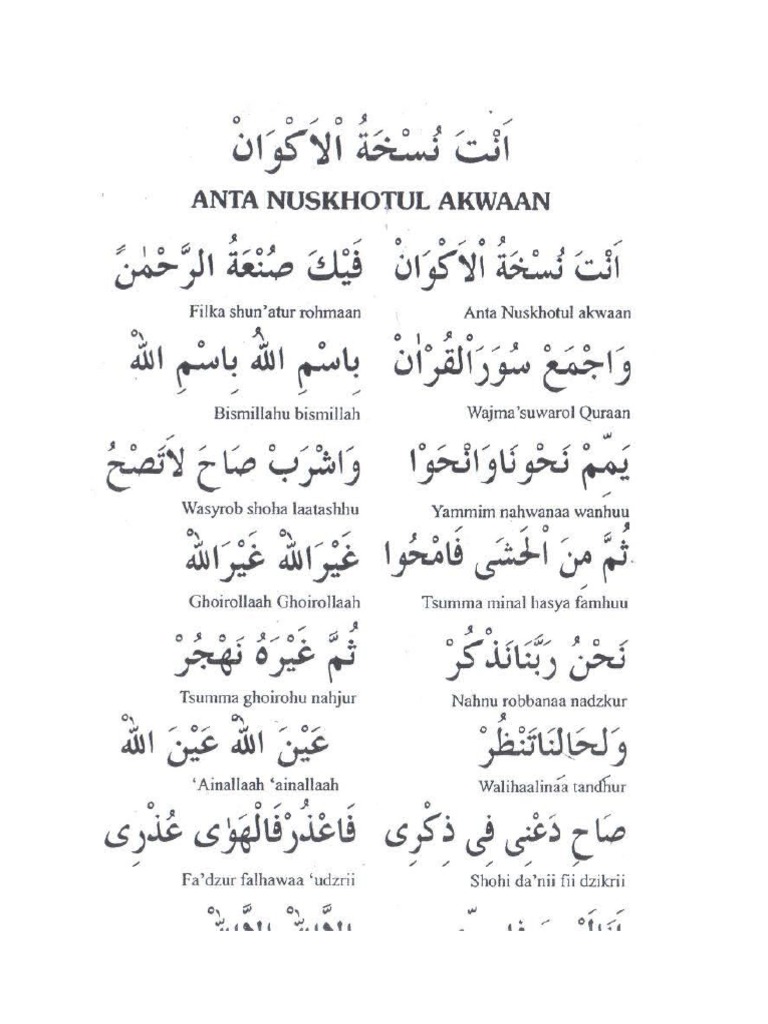 اَنْتَ نُسْخَةُ اْلاَكْوَانْ
ANTA NUSKHOTUL AKWAAN
اَنْتَ نُسْخَةُ اْلاَكْوَانْ فَيْكَ صُنْعَةُ الرَّحْمٰنً
Anta Nuskhotul akwaan Filka shun'atur rohmaan
وَاجْمَعْ سُوَرَاْلقُرْاٰنْ بِاسْمِ اللهُ بِاسْمِ اللهْ
Wajma'suwarol Quraan Bismillahu bismillah
يَمِّمْ نَحْوَنَاوَانْحَوْا وَاشْرَبْ صَاحَ لاَتَصْحُ
Yammim nahwanaa wanhuu Wasyrob shoha laatashhu
ثُمَّ مِنَ اْلحَشَى فَامْحُوا غَيْرَاللهْ غَيْرَاللهْ
Tsumma minal hasya famhuu Ghoirollaah Ghoirollaah
نَحْنُ رَبَّنَانَذْكُرْ ثُمَّ غَيْرَهُ نَهْجُرْ
Nahnu robbanaa nadzkur Tsumma ghoirohu nahjur
وَلِحَالِنَاتَنْظُرْ عَيْنَ اللهْ عَيْنَ اللهْ
Walihaalinaa tandhur 'Ainallaah 'ainallaah
صَاحِ دَعْنِى فِى ذِكْرِى فَاعْذُرْفَالْهَوٰى عُذْرِى
Shohi da'nii fii dzikrii Fa'dzur falhawaa 'udzrii